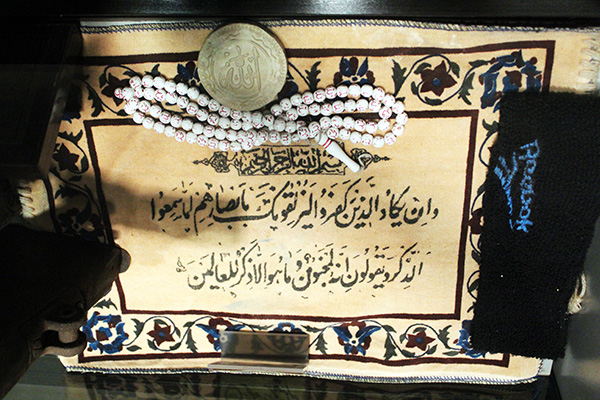 الله
بسم الله الرحمن الرحيم
وان يكاد الذين كفروا ليزلقونك بابصارهم لما سمعوا
الذكر ويقولون انه لمجنون وما هو الا ذكر للعالمين